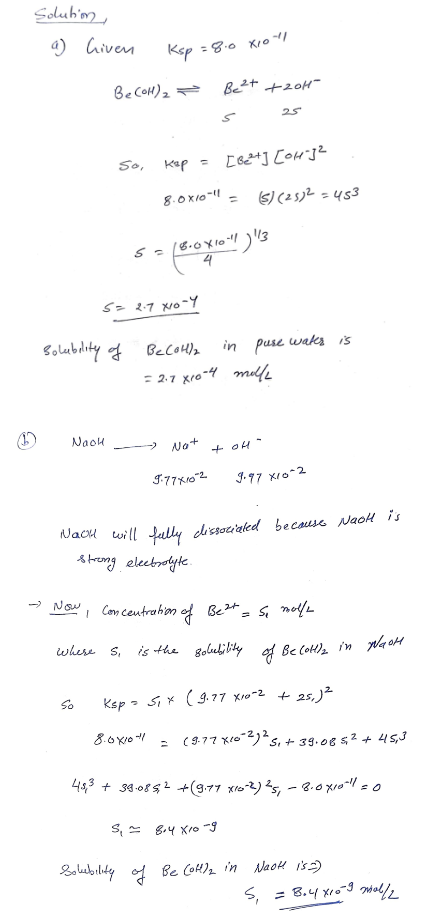 Solution,
a) Given Ksp = 8.0 x10^-11
Be(OH)2 ⇌ Be^2+ + 2OH^-
S 2S
So, Ksp = [Be^2+] [OH^-]^2
8.0x10^-11 = (S)(2S)^2 = 4S^3
S = (8.0x10^-11 / 4)^1/3
S = 2.7 x10^-4
Solubility of Be(OH)2 in pure water is
= 2.7 x10^-4 mol/L
(b) NaOH → Na^+ + OH^-
9.77x10^-2 9.97 x10^-2
NaOH will fully dissociated because NaOH is
strong electrolyte.
→ Now, Concentration of Be^2+ = S1 mol/L
where S1 is the solubility of Be(OH)2 in NaOH
So Ksp = S1 x (9.77 x10^-2 + 2S1)^2
8.0x10^-11 = (9.77 x10^-2)^2 S1 + 39.08 S1^2 + 4S1^3
4S1^3 + 39.08S1^2 + (9.77 x10^-2)^2 S1 - 8.0x10^-11 = 0
S1 ≃ 8.4 x10^-9
Solubility of Be(OH)2 in NaOH is ⇒
S1 = 8.4 x10^-9 mol/L